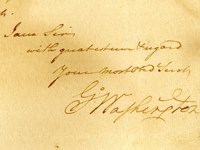 I am Sir,
with great esteem & regard
Your Most Obed Servt
G:Washington